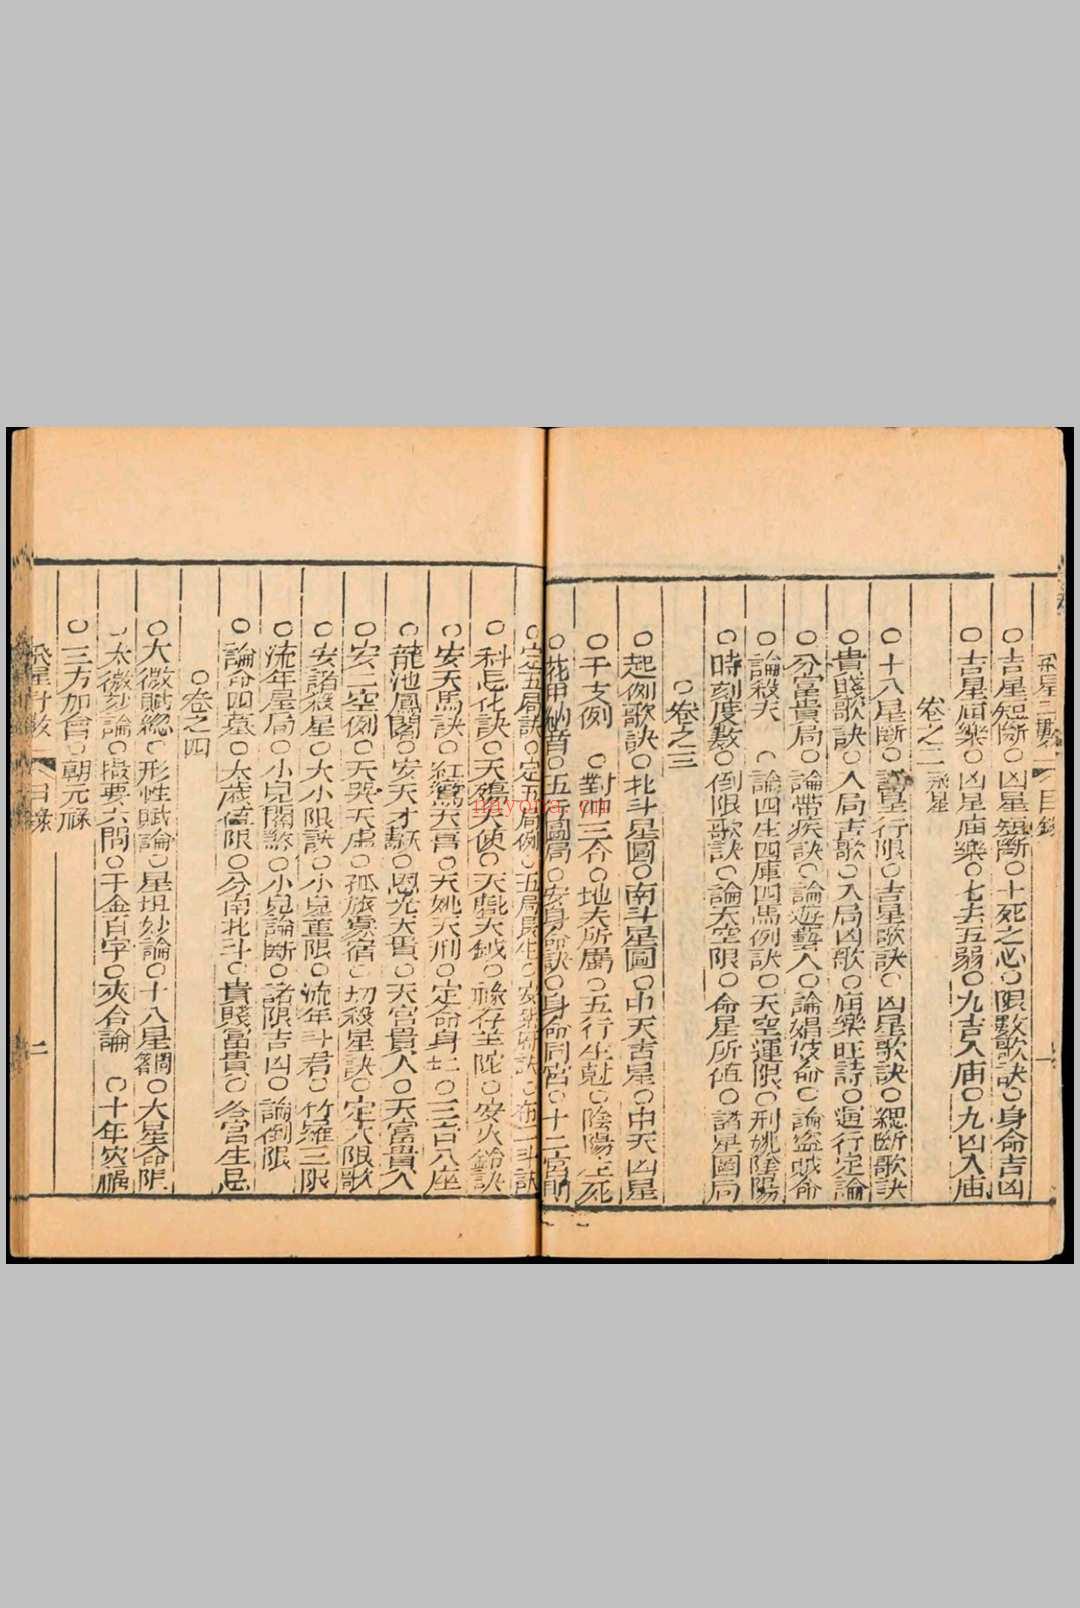 飛星 目錄
○吉星短斷○凶星短斷○十死之心○限數歌訣○身命吉凶
○吉星廟樂○凶星廟樂○七夫五弱○九吉入廟○九凶入庙
卷之二 飛星
○十八星斷○諸星行限○吉星歌訣○凶星歌訣○總斷歌訣
○貴賤歌訣○入局吉歌○入局凶歌○庙樂旺詩○運行定論
○分富貴局○論帶疾訣○論遊藝人○論娼妓命○論盜賊命
○論殺夭 ○論四生四庫四馬例訣○天空運限○刑姚陰陽
○時刻度數○倒限歌訣○論天空限○命星所值○諸星圖局
○卷之三
○起例歌訣○北斗星圖○南斗星圖○中天吉星○中天凶星
○干支例 ○對三合○地支所屬○五行生尅○陰陽生死
○花甲納音○五行圖局○安身命訣○身命同宮○十二宮
○定五局訣○定五局例○五局
○科忌化訣○天殤天使○天魁天鉞○祿存羊陀○安火鈴訣
○安天馬訣○紅鸞天喜○天姚天刑○定命身○三台八座
○龍池鳳閣○安天才訣○恩光天貴○天官貴人○天富貴人
○安二空例○天哭天虛○孤辰寡宿○切殺星訣○定大限歌
○安諸殺星○大小限訣○小兒童限○流年斗君○竹羅三限
○流年星局○小兒關煞○小兒論斷○諸限吉凶○論倒限
○論命四墓○太歲值限○分南北斗○貴賤富貴○各宮生忌
○卷之四
○太微賦總○形性賦論○星垣妙論○十八星問答○大星命限
○太微妙論○撮要六問○千金百字○夾合論 ○十年災福
○三方加會○朝元祿
目錄 二
nayona.cn